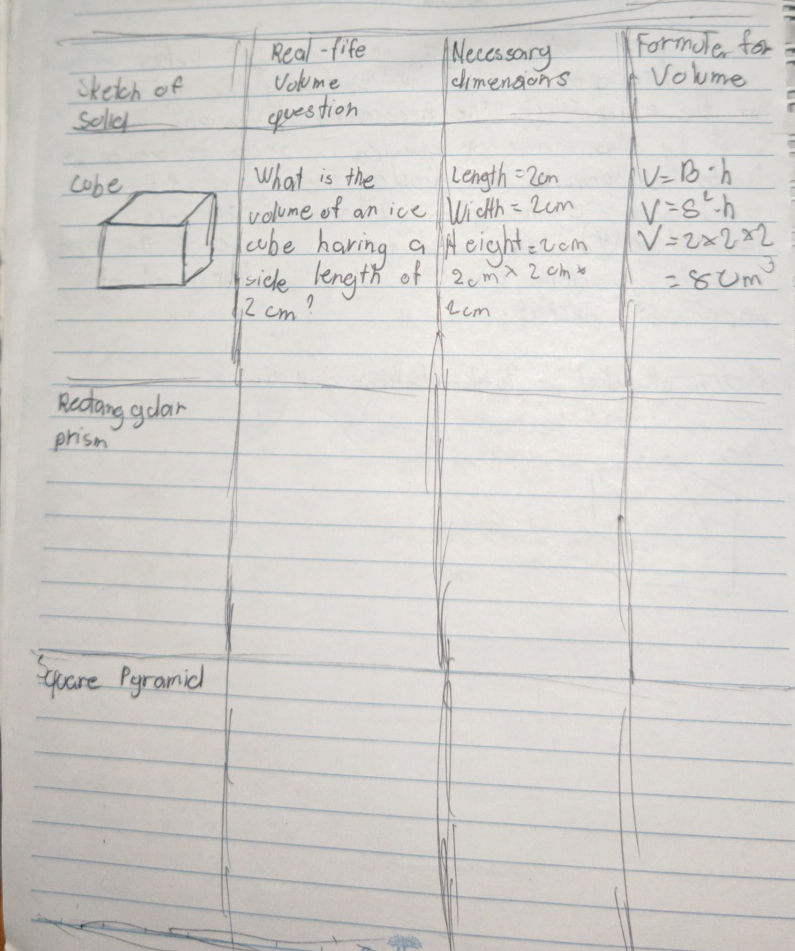 Sketch of
Solid
Real-life
Volume
question
Necessary
dimensions
Formula for
Volume
Cube
What is the
volume of an ice
cube having a
side length of
2 cm?
Length = 2cm
Width = 2cm
Height = 2cm
2cm × 2cm ×
2cm
V = B · h
V = s² · h
V = 2 × 2 × 2
= 8 cm³
Rectanggular
prism
Square Pyramid